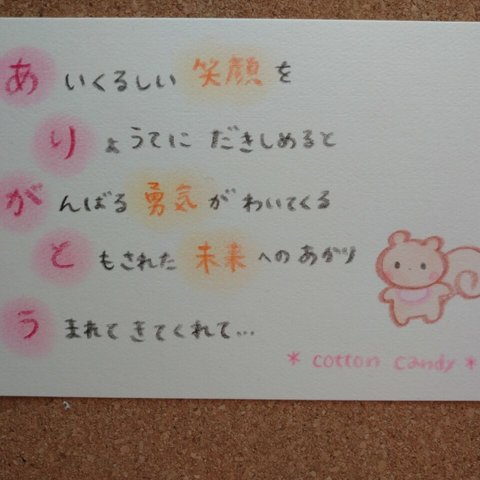 あいくるしい 笑顔を
りょうてに だきしめると
がんばる 勇気が わいてくる
ともされた 未来への あかり
うまれて きてくれて…
* cotton candy *